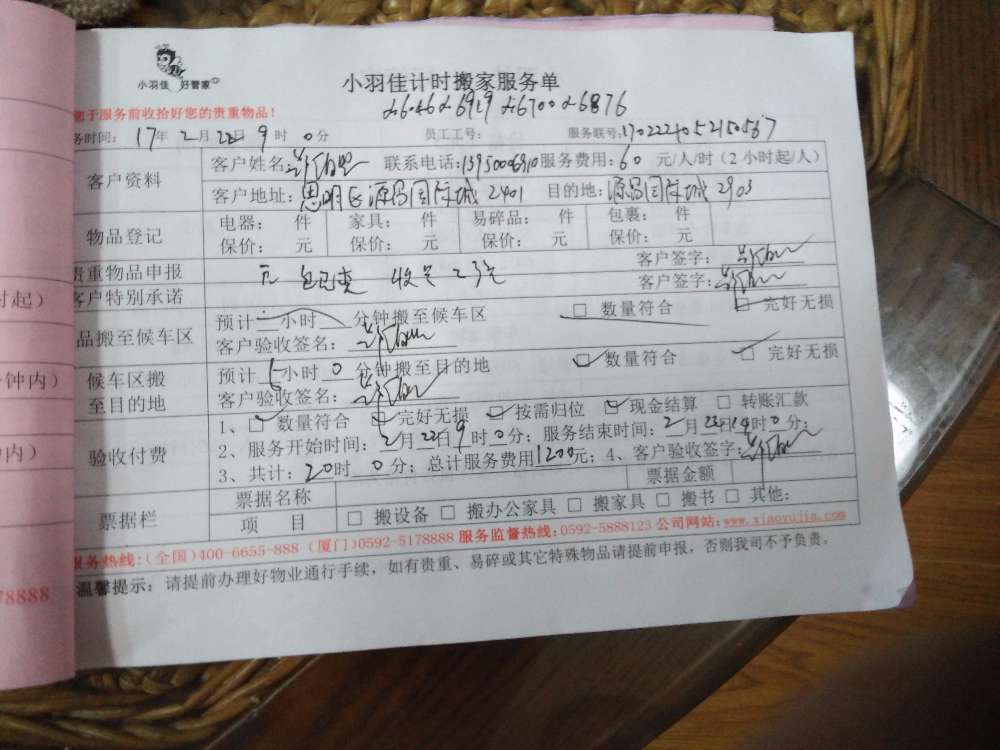 小羽佳 好管家
小羽佳计时搬家服务单
26046 26919 26700 26876
您于服务前收拾好您的贵重物品！
务时间： 17年 2月 22日 9时 0分 员工工号： 服务联号：
客户资料 客户姓名： 联系电话： 服务费用：60 元/人/时（2小时起/人）
客户地址：思明区源昌国际城 2401 目的地：源昌国际城 2903
物品登记 电器： 件 家具： 件 易碎品： 件 包裹： 件
保价： 元 保价： 元 保价： 元 保价： 元
贵重物品申报 无 客户签字：
客户特别承诺 客户签字：
时起）
品搬至候车区 预计 小时 分钟搬至候车区 □ 数量符合 □ 完好无损
客户验收签名：
分钟内） 候车区搬至目的地 预计 5小时 0分钟搬至目的地 数量符合 完好无损
客户验收签名：
钟内） 验收付费 1、 数量符合 完好无损 按需归位 现金结算 □ 转账汇款
2、服务开始时间：2月22日9时0分；服务结束时间：2月22日14时0分；
3、共计：20时 0分；总计服务费用1200元；4、客户验收签字：
票据栏 票据名称 票据金额
项 目 □ 搬设备 □ 搬办公家具 □ 搬家具 □ 搬书 □ 其他：
服务热线：（全国）400-6655-888（厦门）0592-5178888 服务监督热线：0592-5888123 公司网站：www.xiaoyujia.com
78888
温馨提示：请提前办理好物业通行手续，如有贵重、易碎或其它特殊物品请提前申报，否则我司不予负责。